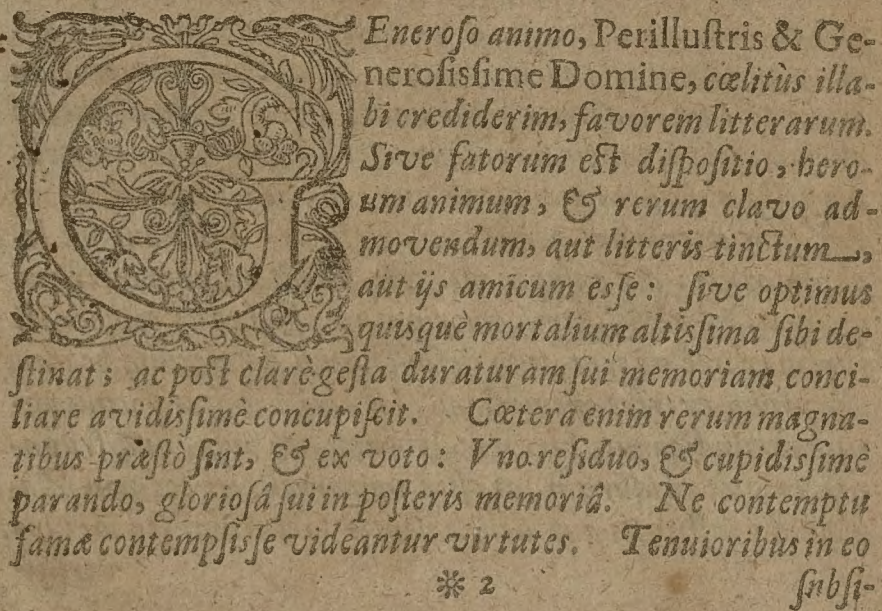 GEneroſo animo, Perilluſtris & Ge-
neroſisſime Domine, cœlitùs illa-
bi crediderim, favorem litterarum.
Sive fatorum eſt diſpoſitio, hero-
um animum, & rerum clavo ad-
movendum, aut litteris tinctum,
aut ijs amicum esſe: ſive optimus
quisquè mortalium altisſima ſibi de-
ſtinat; ac poſt clarè geſta duraturam ſui memoriam conci-
liare avidisſimè concupiſcit. Cœtera enim rerum magna-
tibus præſtò ſint, & ex voto: Vno reſiduo, & cupidisſimè
parando, glorioſâ ſui in poſteris memoriâ. Ne contemptu
famæ contempsisſe videantur virtutes. Tenuioribus in eo
※ 2 ſnbſi-